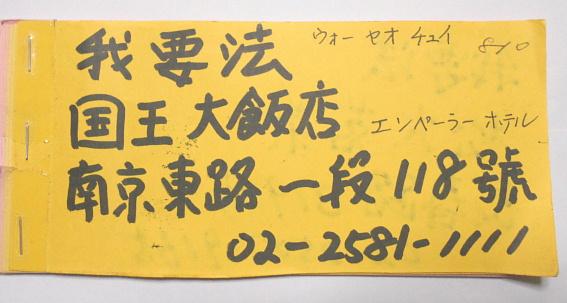 我要法 ウォー セオ チュイ 810
国王大飯店 エンペーラー ホテル
南京東路一段118號
02-2581-1111